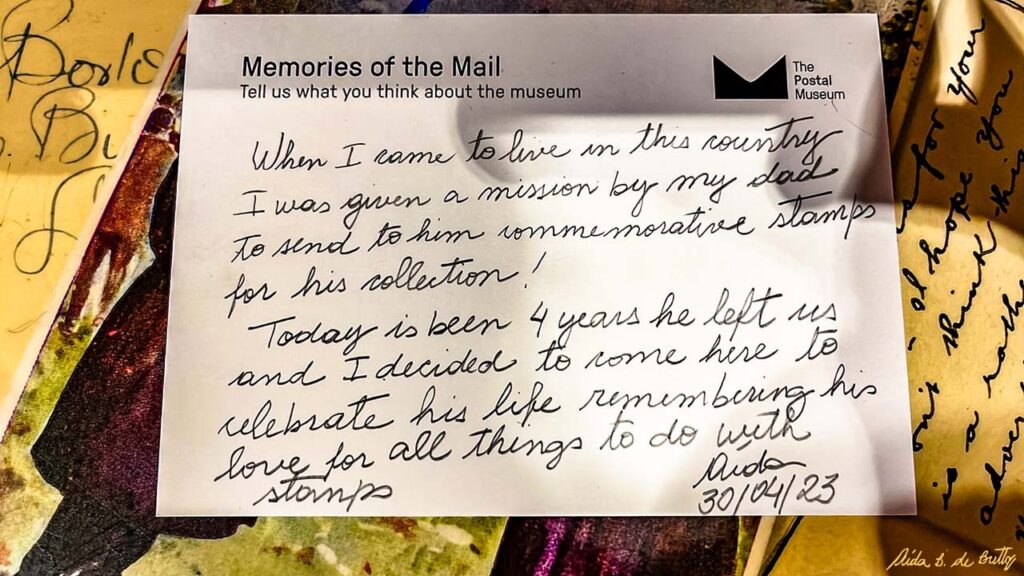 Memories of the Mail
Tell us what you think about the museum
The
Postal
Museum
When I came to live in this country
I was given a mission by my dad
to send to him commemorative stamps
for his collection!
Today is been 4 years he left us
and I decided to come here to
celebrate his life remembering his
love for all things to do with
stamps
Aida
30/04/23
for your
I hope you
think this
is a
Aida B. de Britto